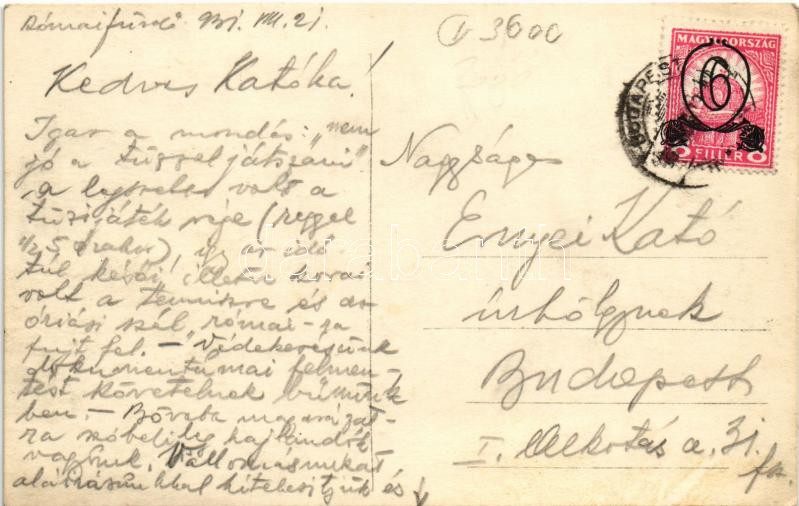 Rómaifürdő 931. VIII. 21.
3600
Kedves Katóka!
Igaz a mondás: "nem
jó a tűzzel játszani"
a legszebb volt a
tűzijáték vége (reggel
1/2 5 órakor), így az idő
túl késői, illetve korai
volt a tenniszre és az
óriási szél római-
fel. – Védekezésünk
dokumentumai felmen-
tést követelnek bűnünk
ben. – Bővebb magyarázat-
ra szóbelileg hajlandók
vagyunk. Vallomásunkat
aláírásunkkal hitelesítjük és
MAGYARORSZÁG
6
8 FILLÉR 8
BUDAPEST
Nagyságos
Ernyei Kató
úrhölgynek
Budapest
I. Alkotás u. 31.
darabanth.com